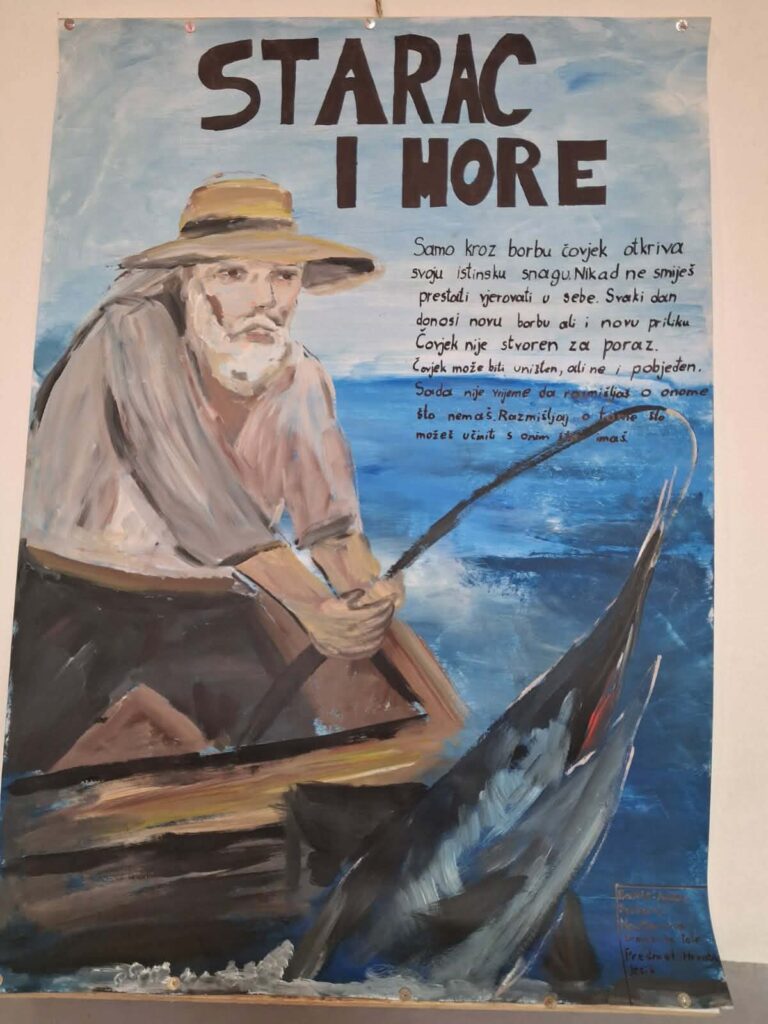 STARAC
I MORE
Samo kroz borbu čovjek otkriva
svoju istinsku snagu. Nikad ne smiješ
prestati vjerovati u sebe. Svaki dan
donosi novu borbu ali i novu priliku
Čovjek nije stvoren za poraz.
Čovjek može biti uništen, ali ne i pobjeđen.
Sada nije vrijeme da razmišljaš o onome
što nemaš. Razmišljaj o tome što
možeš učiniti s onim imaš.
Predmet